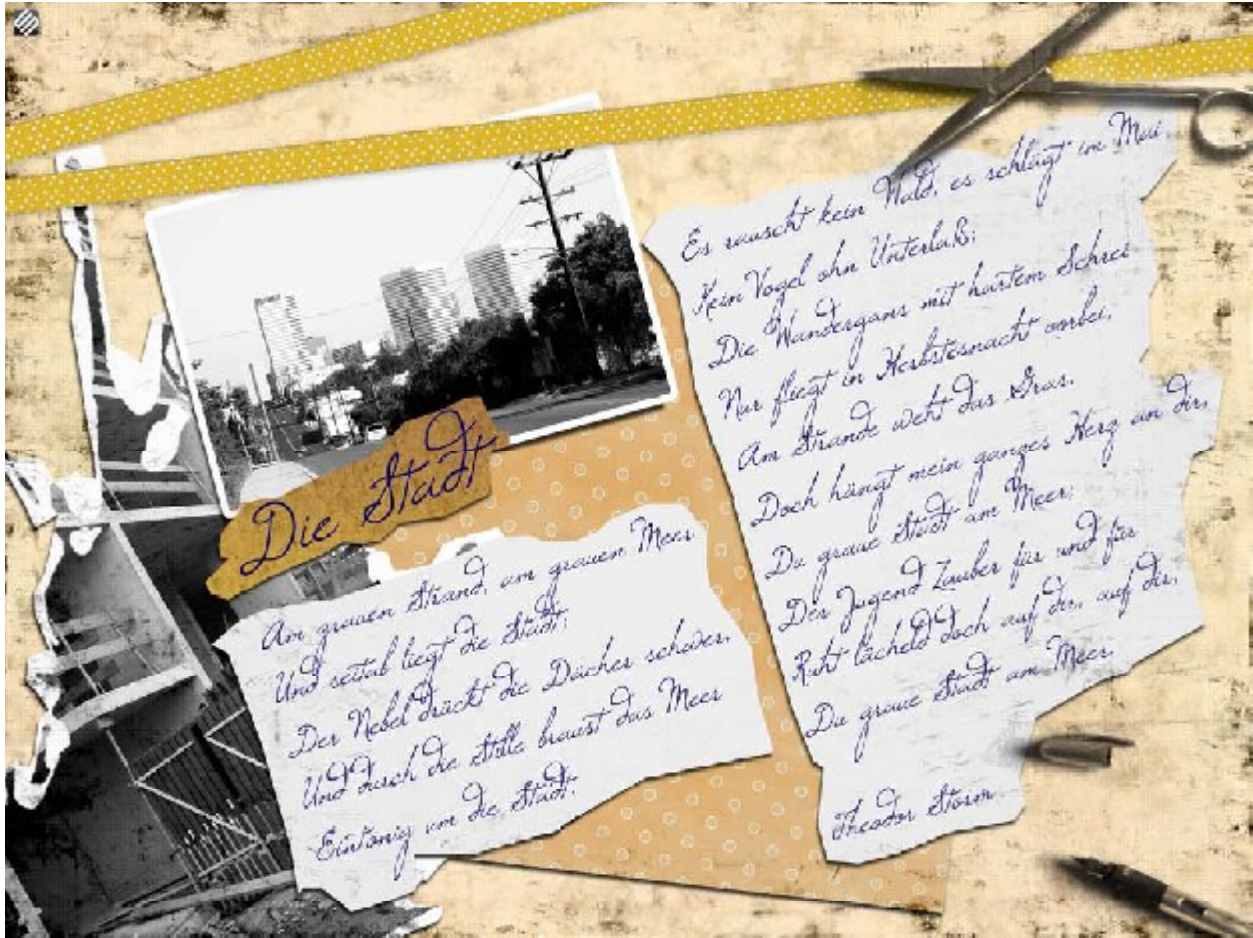 Die Stadt
Am grauen Strand, am grauen Meer
Und seitab liegt die Stadt;
Der Nebel drückt die Dächer schwer,
Und durch die Stille braust das Meer
Eintönig um die Stadt.
Es rauscht kein Wald, es schlägt im Mai
Kein Vogel ohn Unterlaß;
Die Wandergans mit hartem Schrei
Nur fliegt in Herbstesnacht vorbei,
Am Strande weht das Gras.
Doch hängt mein ganzes Herz an dir,
Du graue Stadt am Meer;
Der Jugend Zauber für und für
Ruht lächelnd doch auf dir, auf dir,
Du graue Stadt am Meer.
Theodor Storm